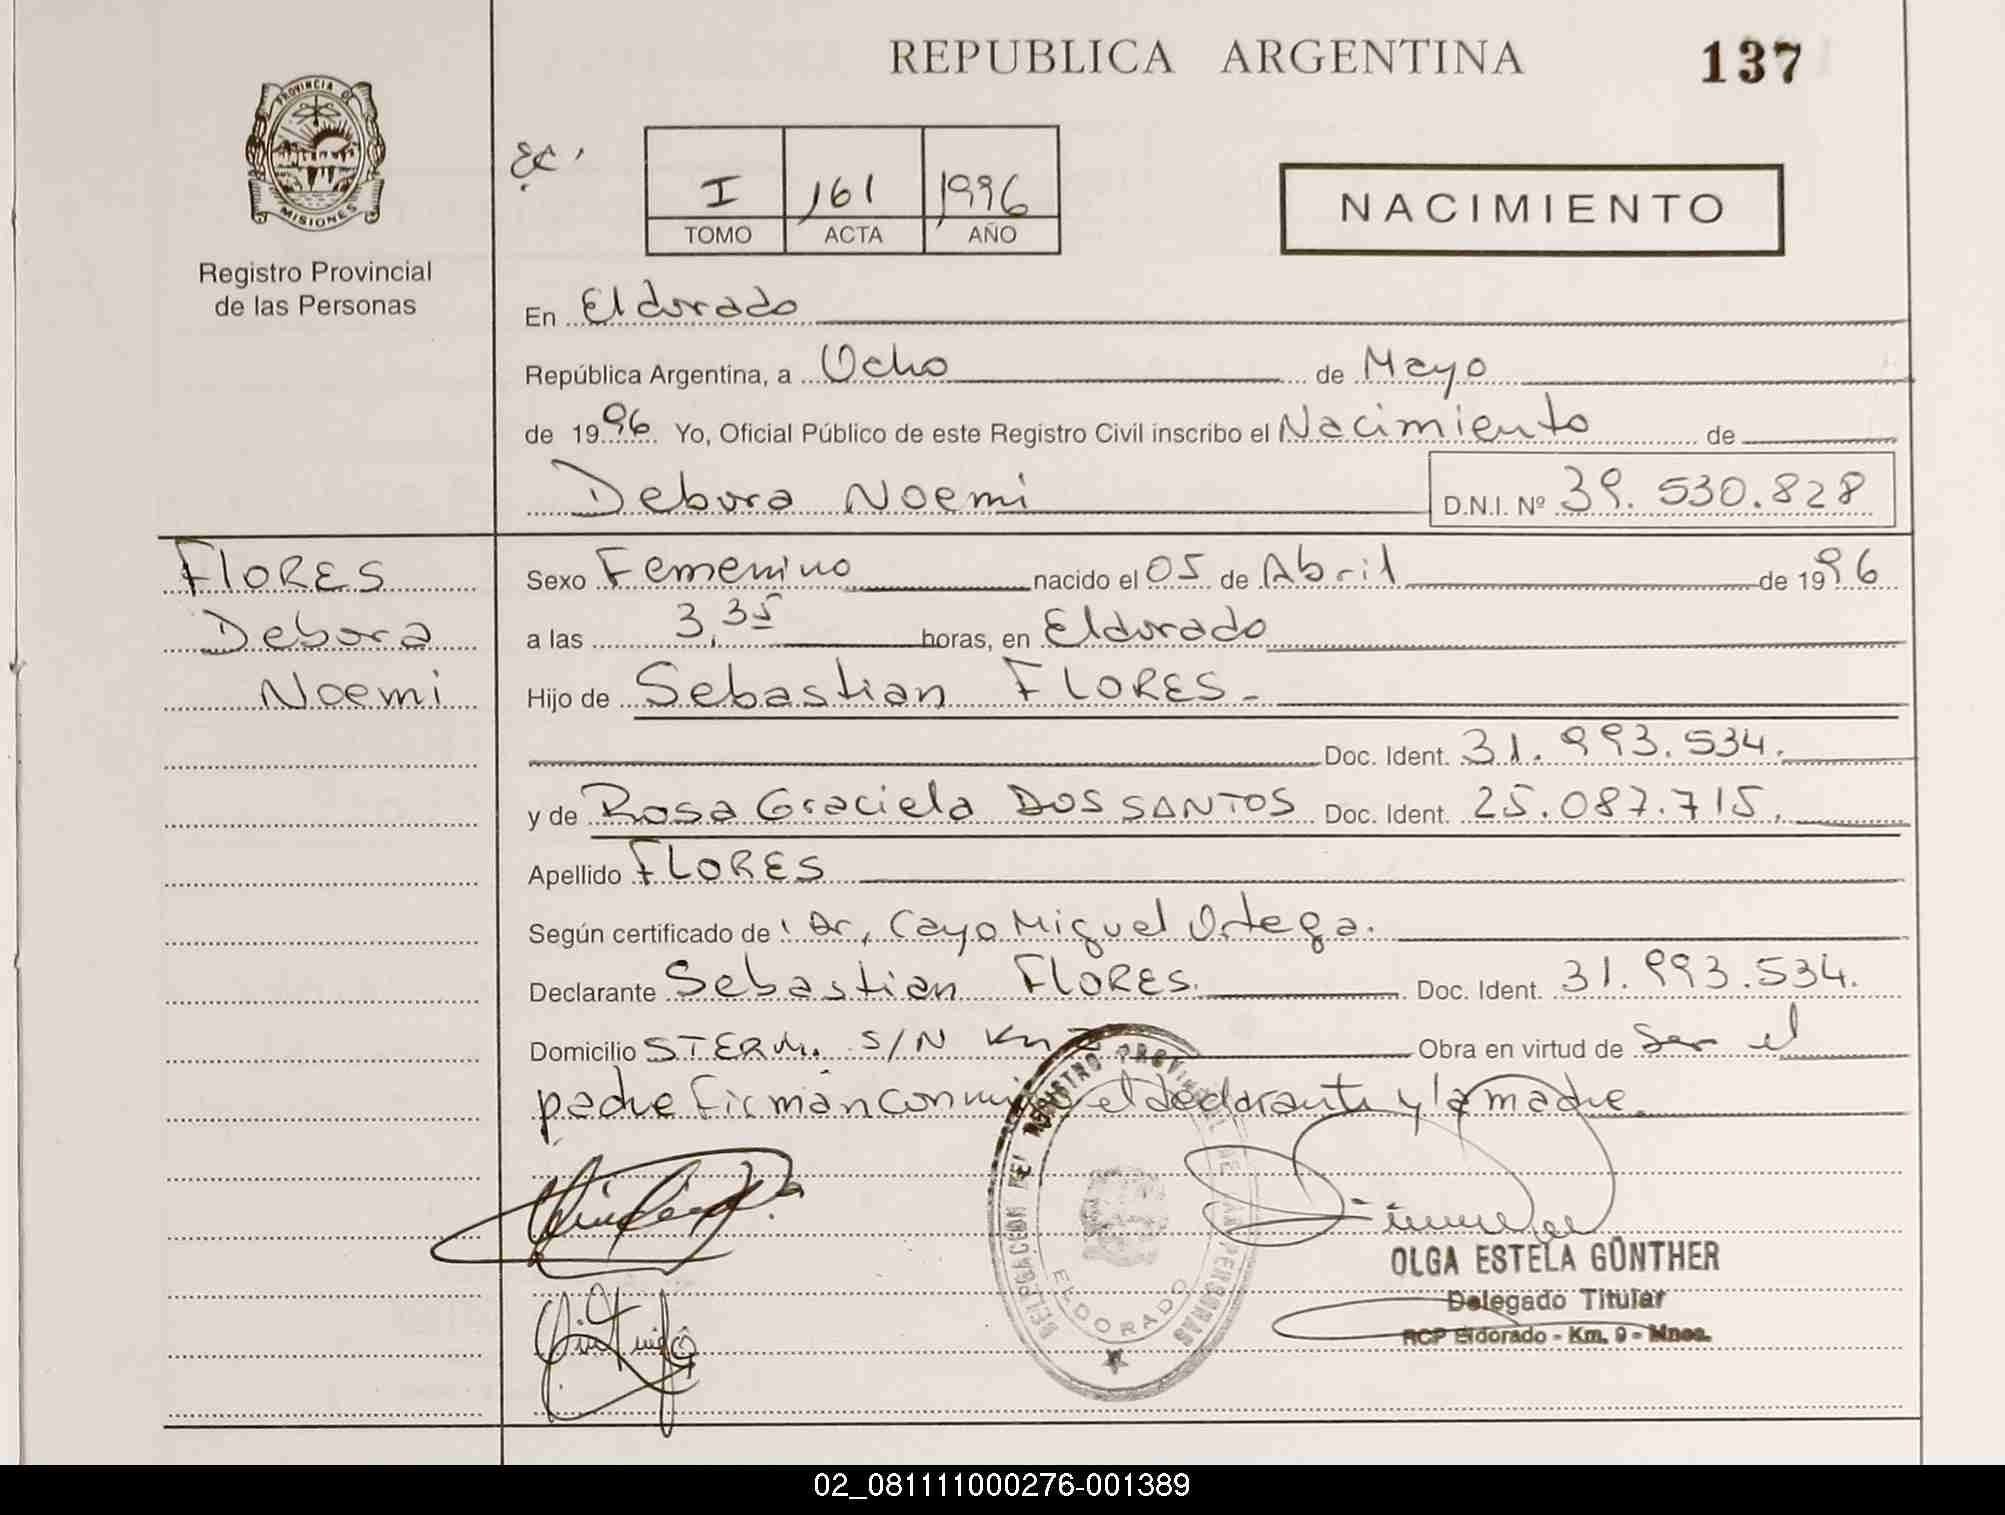 REPUBLICA ARGENTINA
137
PROVINCIA DE
MISIONES
Registro Provincial
de las Personas
I 161 1996
TOMO ACTA AÑO
NACIMIENTO
En Eldorado
República Argentina, a Ocho de Mayo
de 1996 Yo, Oficial Público de este Registro Civil inscribo el Nacimiento de
Debora Noemi D.N.I. Nº 39.530.828
FLORES
Debora
Noemi
Sexo Femenino nacido el 05 de Abril de 1996
a las 3,35 horas, en Eldorado
Hijo de Sebastian FLORES.-
Doc. Ident. 31.993.534.
y de Rosa Graciela DOS SANTOS Doc. Ident. 25.087.715.
Apellido FLORES
Según certificado de Dr, Cayo Miguel Ortega.
Declarante Sebastian FLORES. Doc. Ident. 31.993.534.
Domicilio S/N Km Obra en virtud de ser el
padre firman el declarante y la madre.
DELEGACION DEL REGISTRO PROVINCIAL DE LAS PERSONAS
ELDORADO
OLGA ESTELA GÜNTHER
Delegado Titular
RCP Eldorado - Km. 9 - Mnes.
02_081111000276-001389